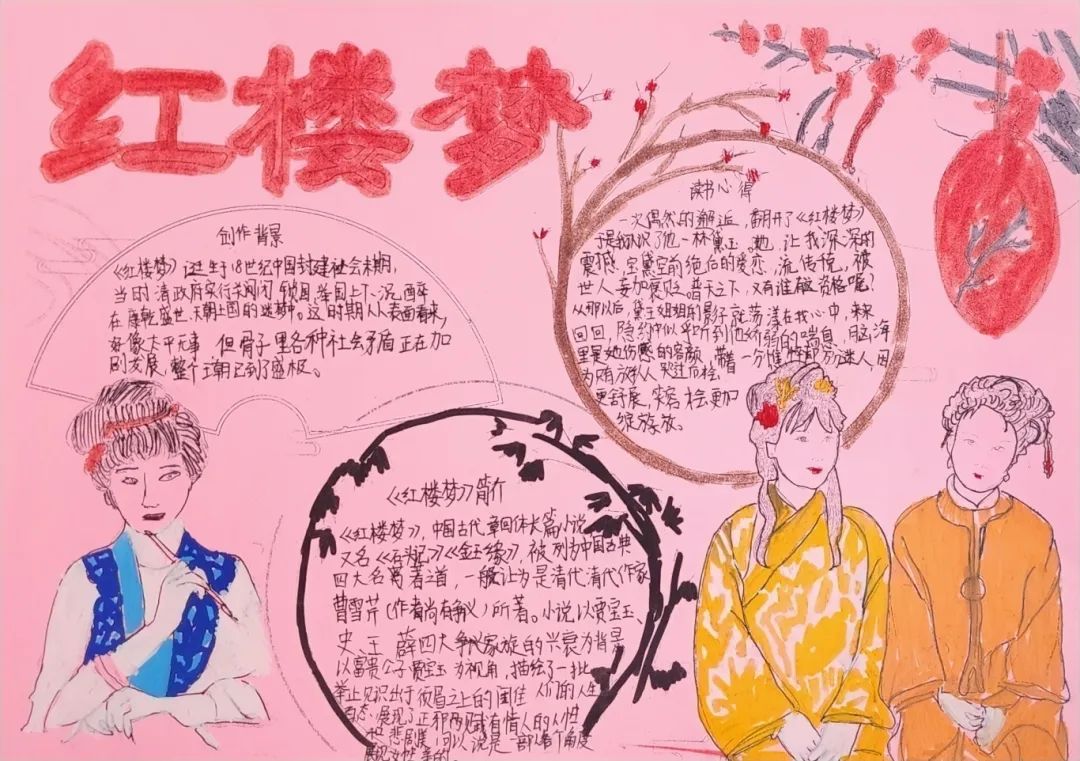 红楼梦
创作背景
《红楼梦》诞生于18世纪中国封建社会末期,
当时清政府实行关闭锁国,举国上下沉醉
在康乾盛世、天朝上国的迷梦中。这时期从表面看来,
好像太平无事,但骨子里各种社会矛盾正在加
剧发展,整个王朝已到了盛极。
读书心得
一次偶然的邂逅,翻开了《红楼梦》
于是我认识了他—林黛玉,她,让我深深的
震撼,宝黛空前绝后的爱恋,流传说,被
世人妄加褒贬。普天之下,又有谁敢资格呢?
从那以后,黛玉姐姐的影子就荡漾在我心中,来
回回,隐约中似乎听到他娇弱的喘息,脑海
里是她伤感的容颜,带着一分
更舒展,桧更加
绽放放。
《红楼梦》简介
《红楼梦》,中国古代章回体长篇小说
又名《石头记》《金玉缘》,被列为中国古典
四大名著之首,一般认为是清代清代作家
曹雪芹(作者尚有争议)所著。小说以贾宝玉、
史、王、薛四大家族的兴衰为背景
以富贵公子贾宝玉为视角,描绘了一批
举止见识出于须眉之上的闺佳人们的人生
百态,展现了正邪两赋有情人的人性
和悲剧美,可以说是一部从各个角度
展现女性美的